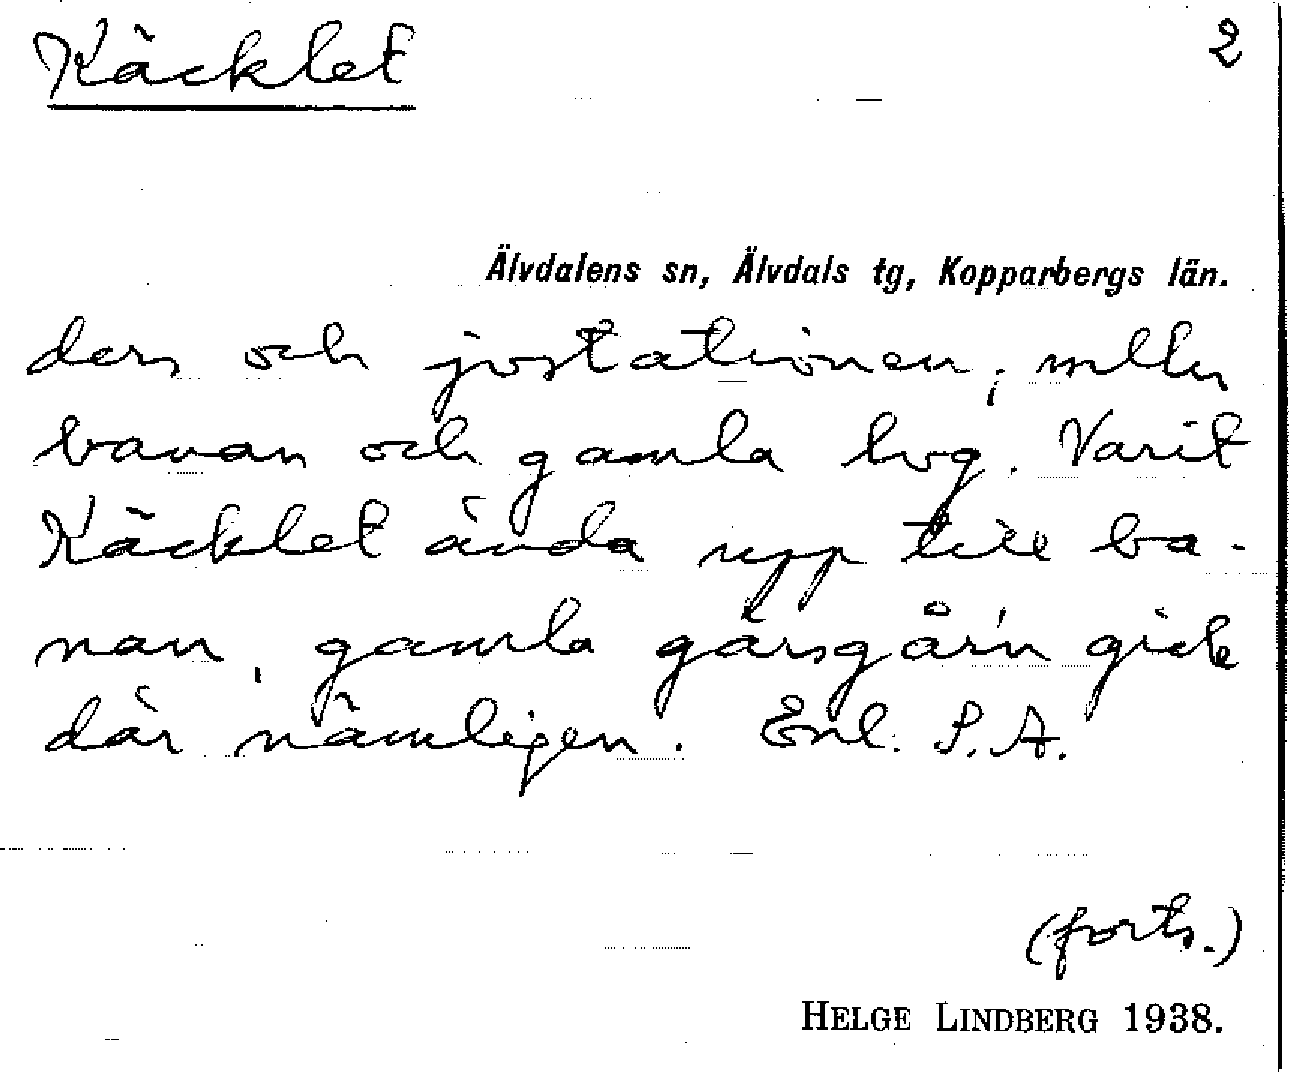 Käcklet 2
Älvdalens sn, Älvdals tg, Kopparbergs län.
den och jvstationen, mller
banan och gamla lvg. Varit
Käcklet ända upp till ba-
nan, gamla gärsgår'n gick
där nämligen. Enl. S.A.
(forts.)
HELGE LINDBERG 1938.